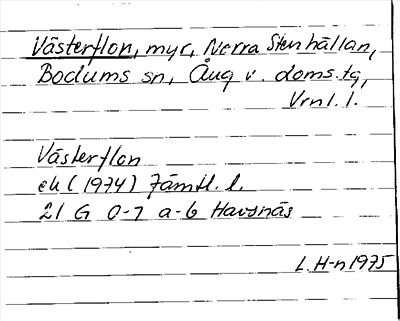 Västerflon, myr, Norra Stenhällan,
Bodums sn, Ång v. doms.tg,
Vrnl. l.
Västerflon
ek (1974) Jämtl. l.
21 G 0-1 a-b Havsnäs
L. H-n 1975